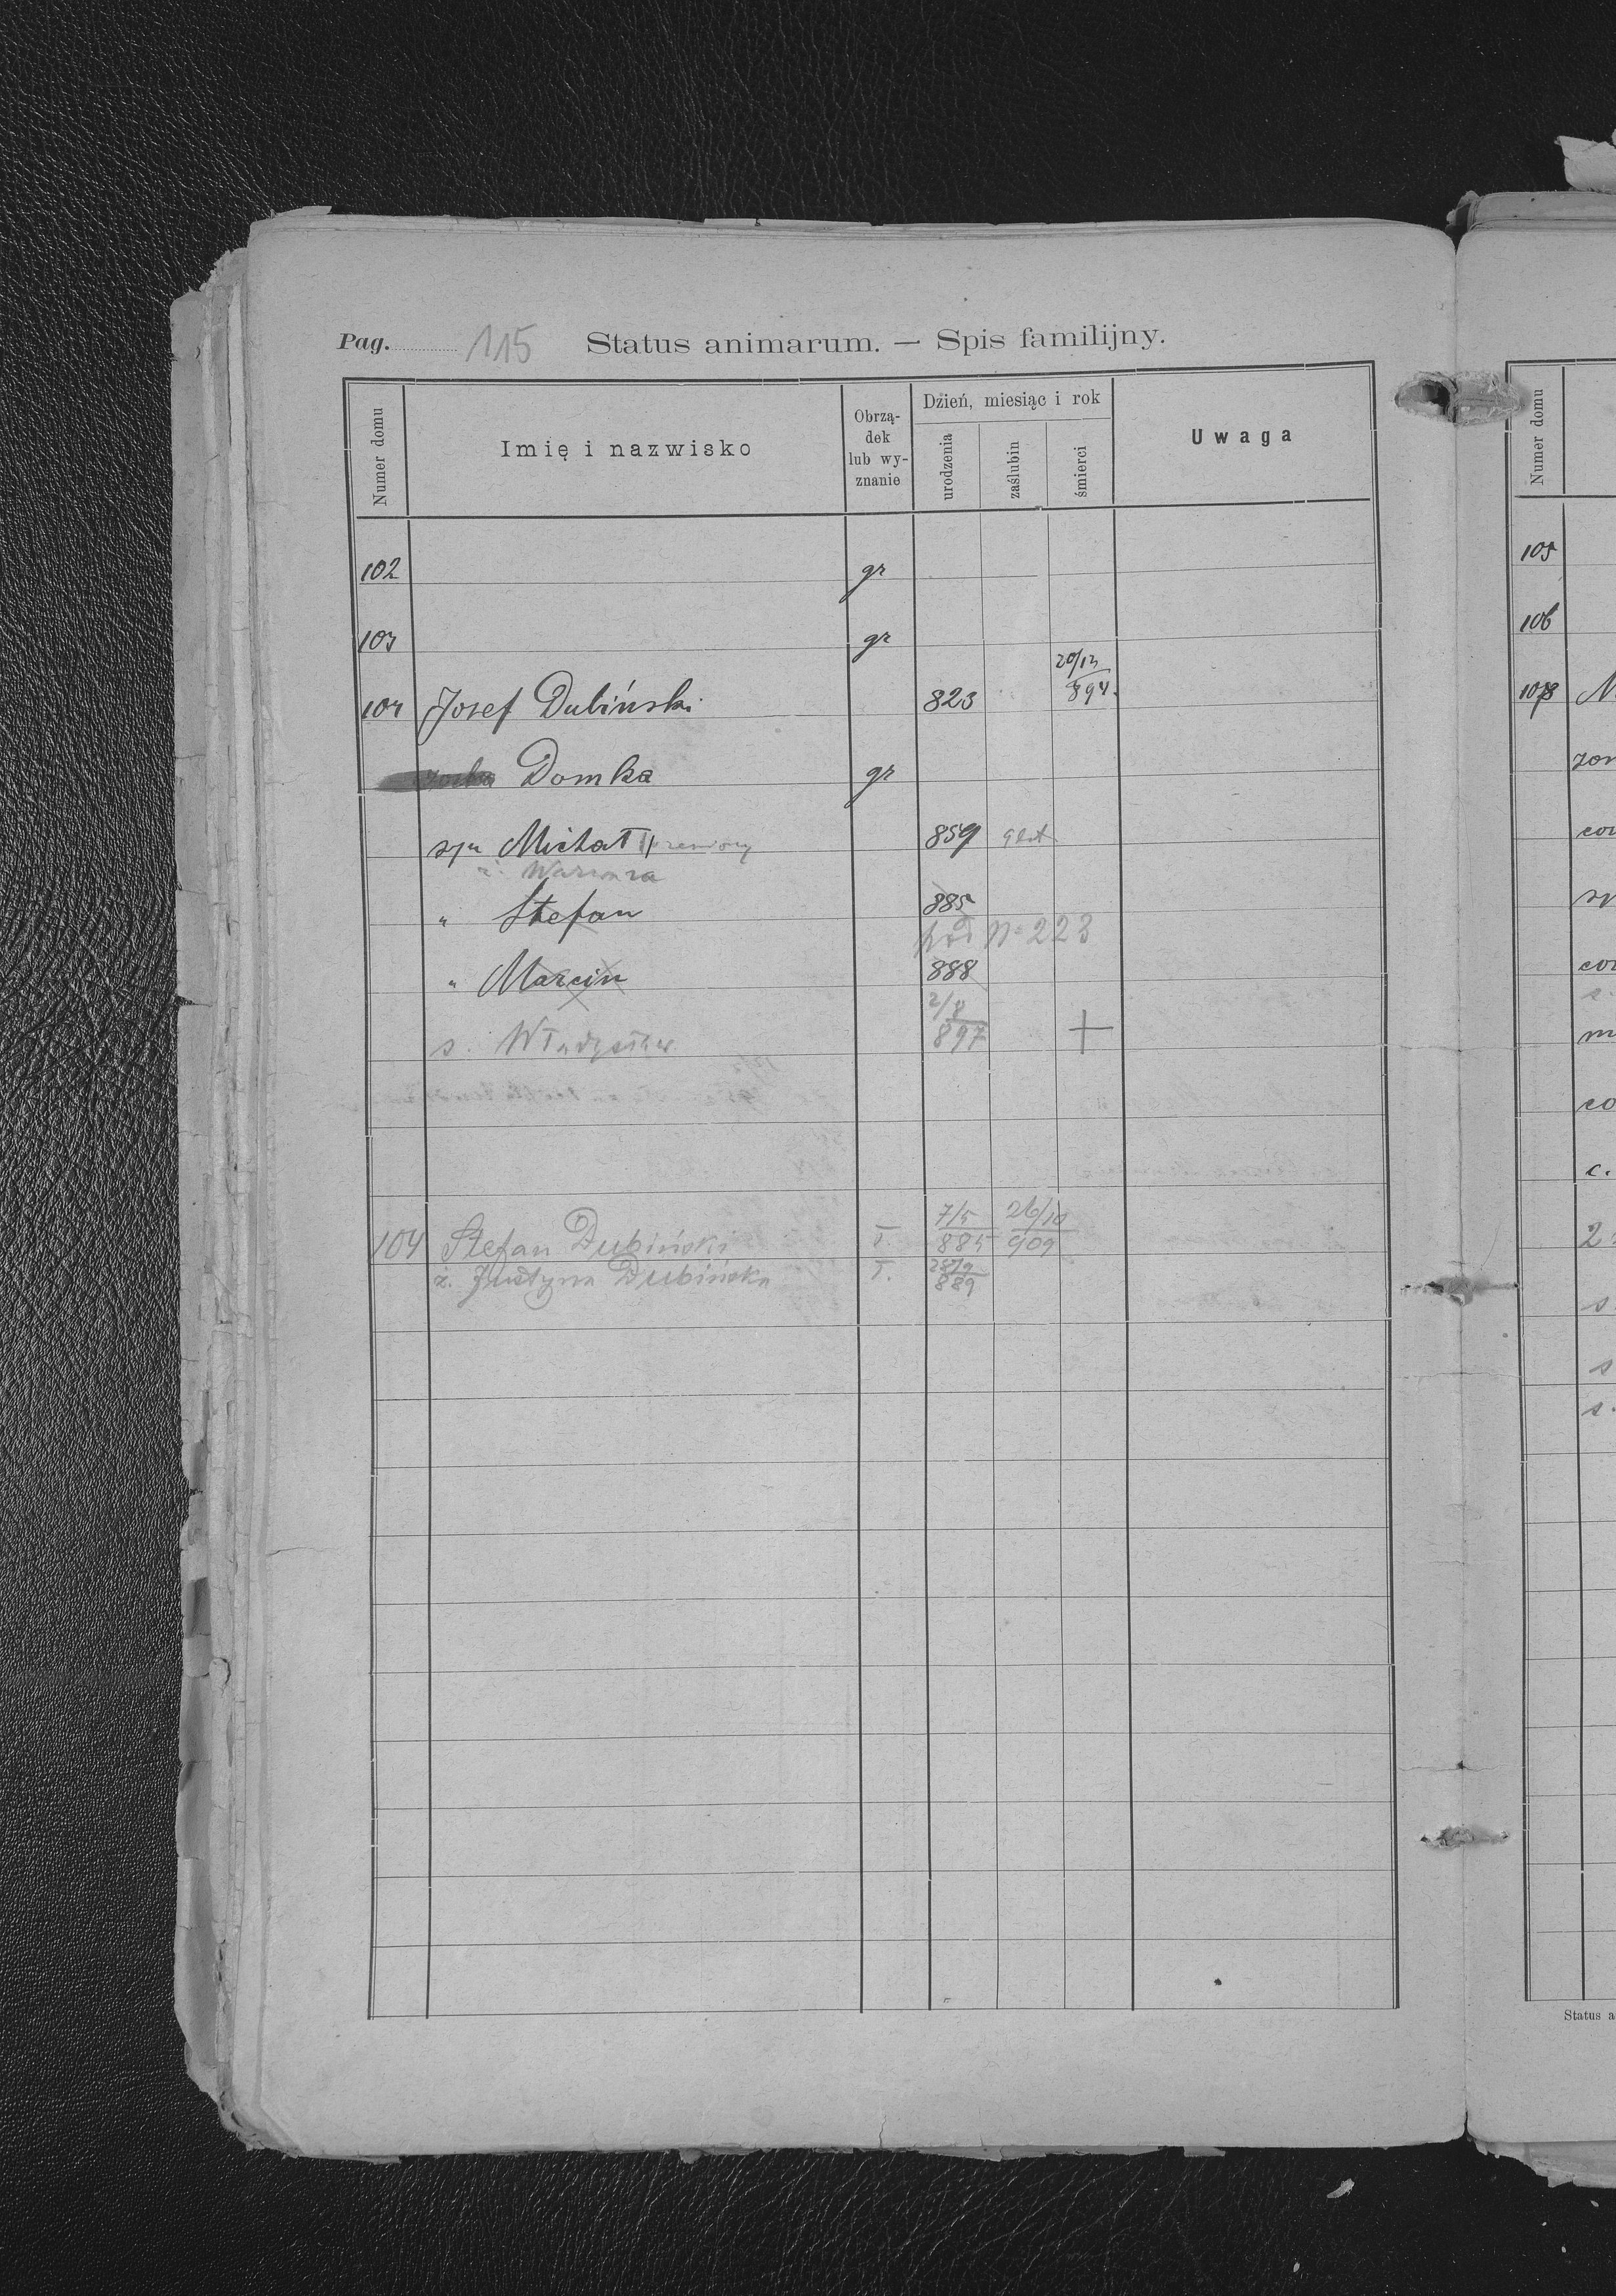 Pag. 115 Status animarum. — Spis familijny.
Numer domu
Imię i nazwisko
Obrzą-
dek
lub wy-
znanie
Dzień, miesiąc i rok
urodzenia
zaślubin
śmierci
Uwaga
102 gr
103 gr
20/12
104 Josef Dubiński 823 894.
Domka gr
syn Michał 859
ż.
" Stefan 885
pod No 223
" Marcin 888
2/8
s. Władysław 897 +
7/5 26/10
104 Stefan Dubiński Ł. 885 909
ż. Justyna Dubińska Ł. 889
Numer domu
105
106
108
Status a